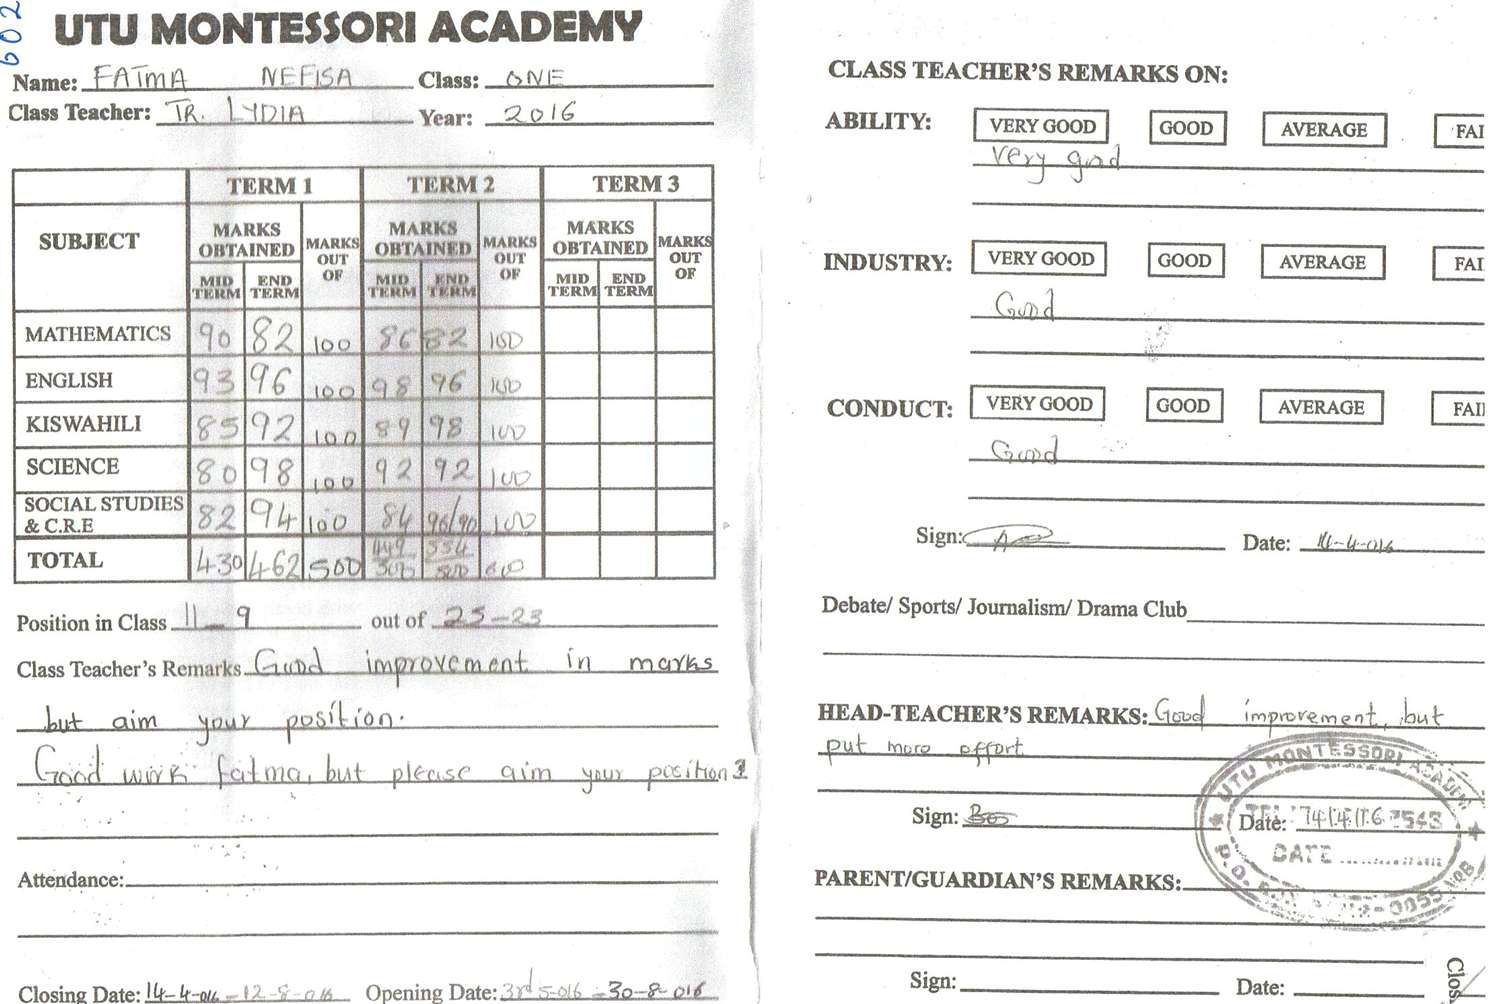 602
UTU MONTESSORI ACADEMY
Name: FATMA NEFISA Class: ONE
Class Teacher: TR. LYDIA Year: 2016
SUBJECT TERM 1 TERM 2 TERM 3
MARKS OBTAINED MARKS OUT OF MARKS OBTAINED MARKS OUT OF MARKS OBTAINED MARKS OUT OF
MID TERM END TERM MID TERM END TERM MID TERM END TERM
MATHEMATICS 90 82 100 86 82 100
ENGLISH 93 96 100 98 96 100
KISWAHILI 85 92 100 89 98 100
SCIENCE 80 98 100 92 92 100
SOCIAL STUDIES & C.R.E 82 94 100 84 96/90 100
TOTAL 430 462 500 449 500 554
Position in Class 11-9 out of 25-23
Class Teacher's Remarks Good improvement in marks
but aim your position.
Good work Fatma, but please aim your position
Attendance:
Closing Date: 14-4-016 - 12-8-016 Opening Date: 3rd 5-016 - 30-8-016
CLASS TEACHER'S REMARKS ON:
ABILITY: VERY GOOD GOOD AVERAGE FAI
Very good
INDUSTRY: VERY GOOD GOOD AVERAGE FAI
Good
CONDUCT: VERY GOOD GOOD AVERAGE FAI
Good
Sign: Date: 14-4-016
Debate/ Sports/ Journalism/ Drama Club
HEAD-TEACHER'S REMARKS: Good improvement, but
put more effort
UTU MONTESSORI ACADEMY
Sign: Date:
DATE
P.O.
PARENT/GUARDIAN'S REMARKS:
Sign: Date:
Clos